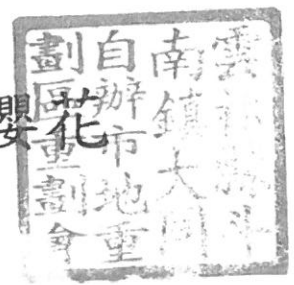 雲林縣斗
南鎮大同
自辦市地重
劃區重劃會
櫻花